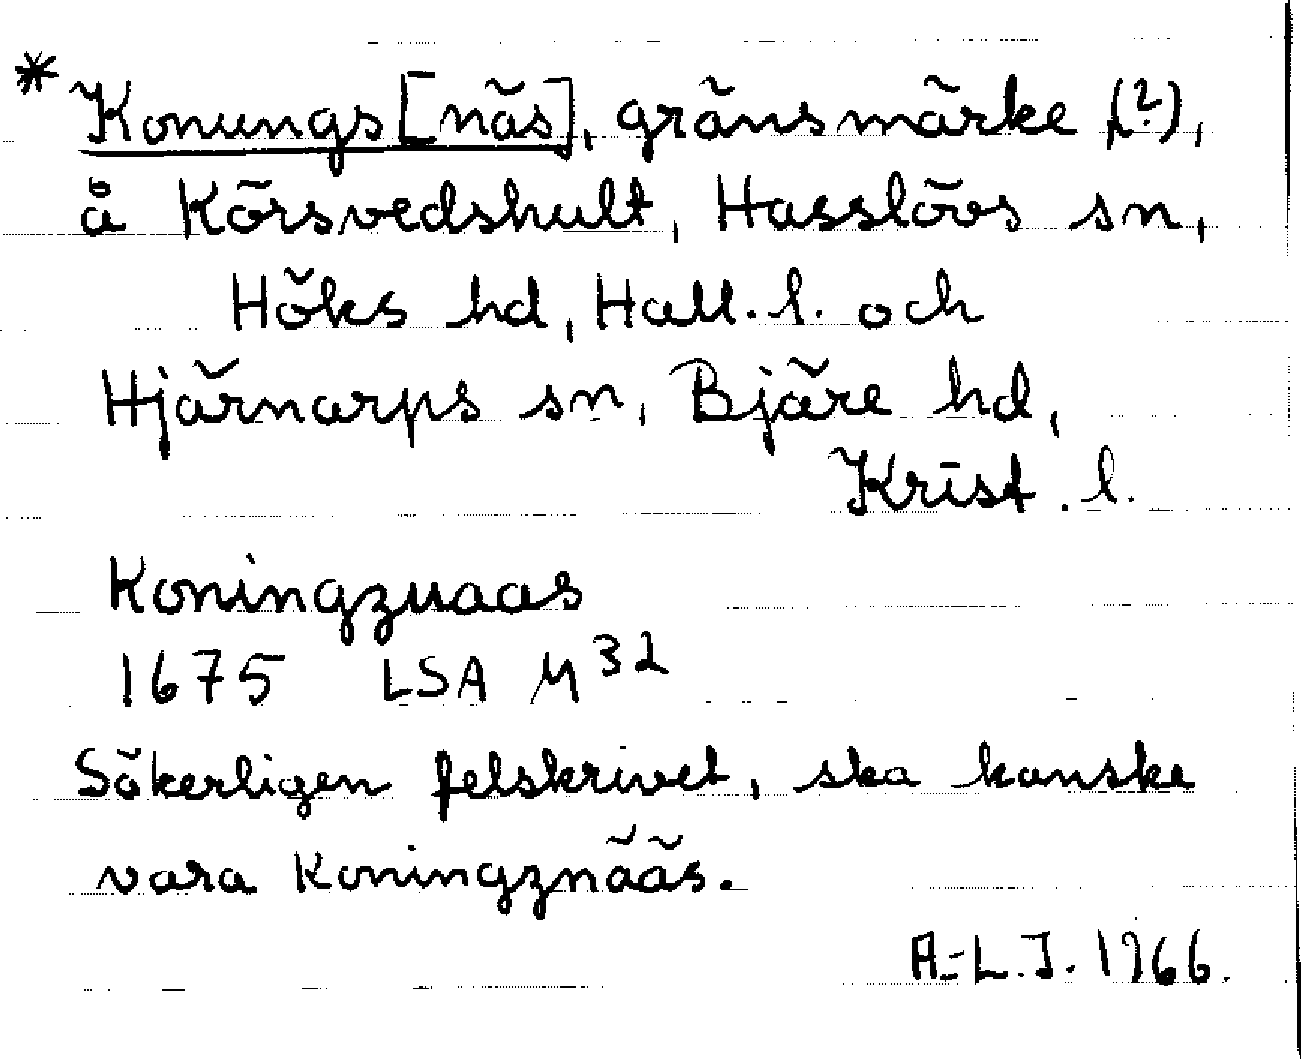 * Konungs[näs], gränsmärke (?),
å Körsvedshult, Hasslövs sn,
Höks hd, Hall. l. och
Hjärnarps sn, Bjäre hd,
Krist. l.
Koningzuaas
1675 LSA M³²
Säkerligen felskrivet, ska kanske
vara Koningznääs.
A-L.J. 1966.